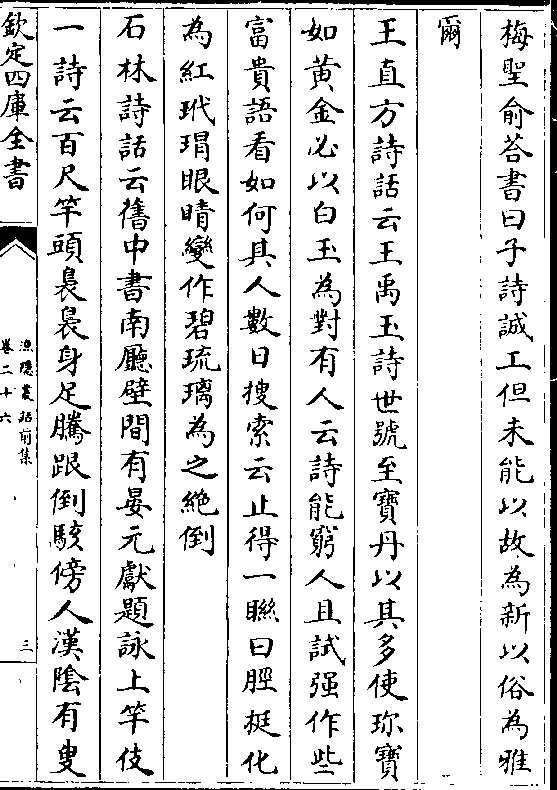 梅聖俞荅書曰子詩誠工但未能以故為新以俗為雅
爾
王直方詩話云王禹玉詩世號至寶丹以其多使珎寶
如黄金必以白玉為對有人云詩能窮人且試强作些
富貴語看如何其人數日搜索云止得一聯曰脛挺化
為紅玳瑁眼睛變作碧琉璃為之絶倒
石林詩話云舊中書南廳壁間有晏元獻題詠上竿伎
一詩云百尺竿頭裊裊身足騰跟倒駭傍人漢陰有叟
欽定四庫全書
漁隱叢話前集
卷二十六
三